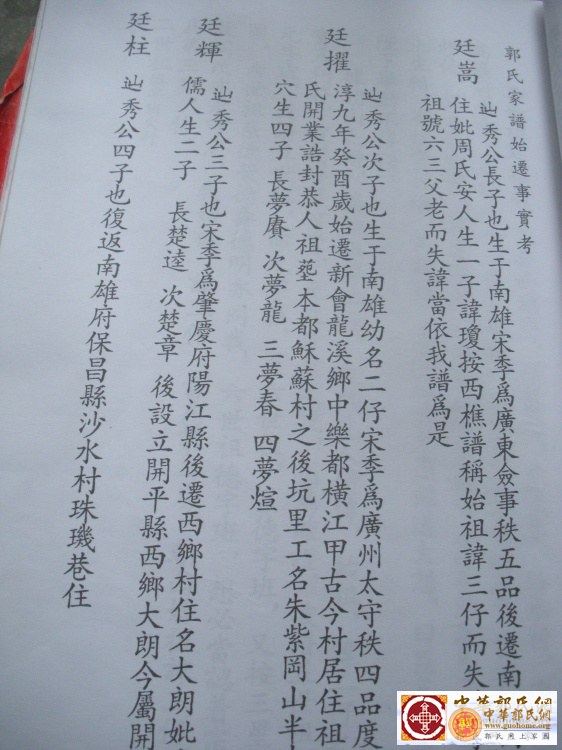 郭氏家譜始遷事實考
廷嵩
辿秀公長子也生于南雄宋季爲廣東僉事秩五品後遷南
住妣周氏安人生一子諱瓊按西樵譜稱始祖諱三仔而失
祖號六三父老而失諱當依我譜爲是
廷擢
辿秀公次子也生于南雄幼名二仔宋季爲廣州太守秩四品度
淳九年癸酉歲始遷新會龍溪鄉中樂都橫江甲古今村居住祖
氏開業誥封恭人祖塋本都穌蘇村之後坑里工名朱紫岡山半
穴生四子 長夢賡 次夢龍 三夢春 四夢煊
廷輝
辿秀公三子也宋季爲肇慶府陽江縣後遷西鄉村住名大朗妣
儒人生二子 長楚逵 次楚章 後設立開平縣西鄉大朗今屬開
廷柱
辿秀公四子也復返南雄府保昌縣沙水村珠璣巷住
中華郭氏網
中華郭氏網
www.guohome.org
郭氏網上家園